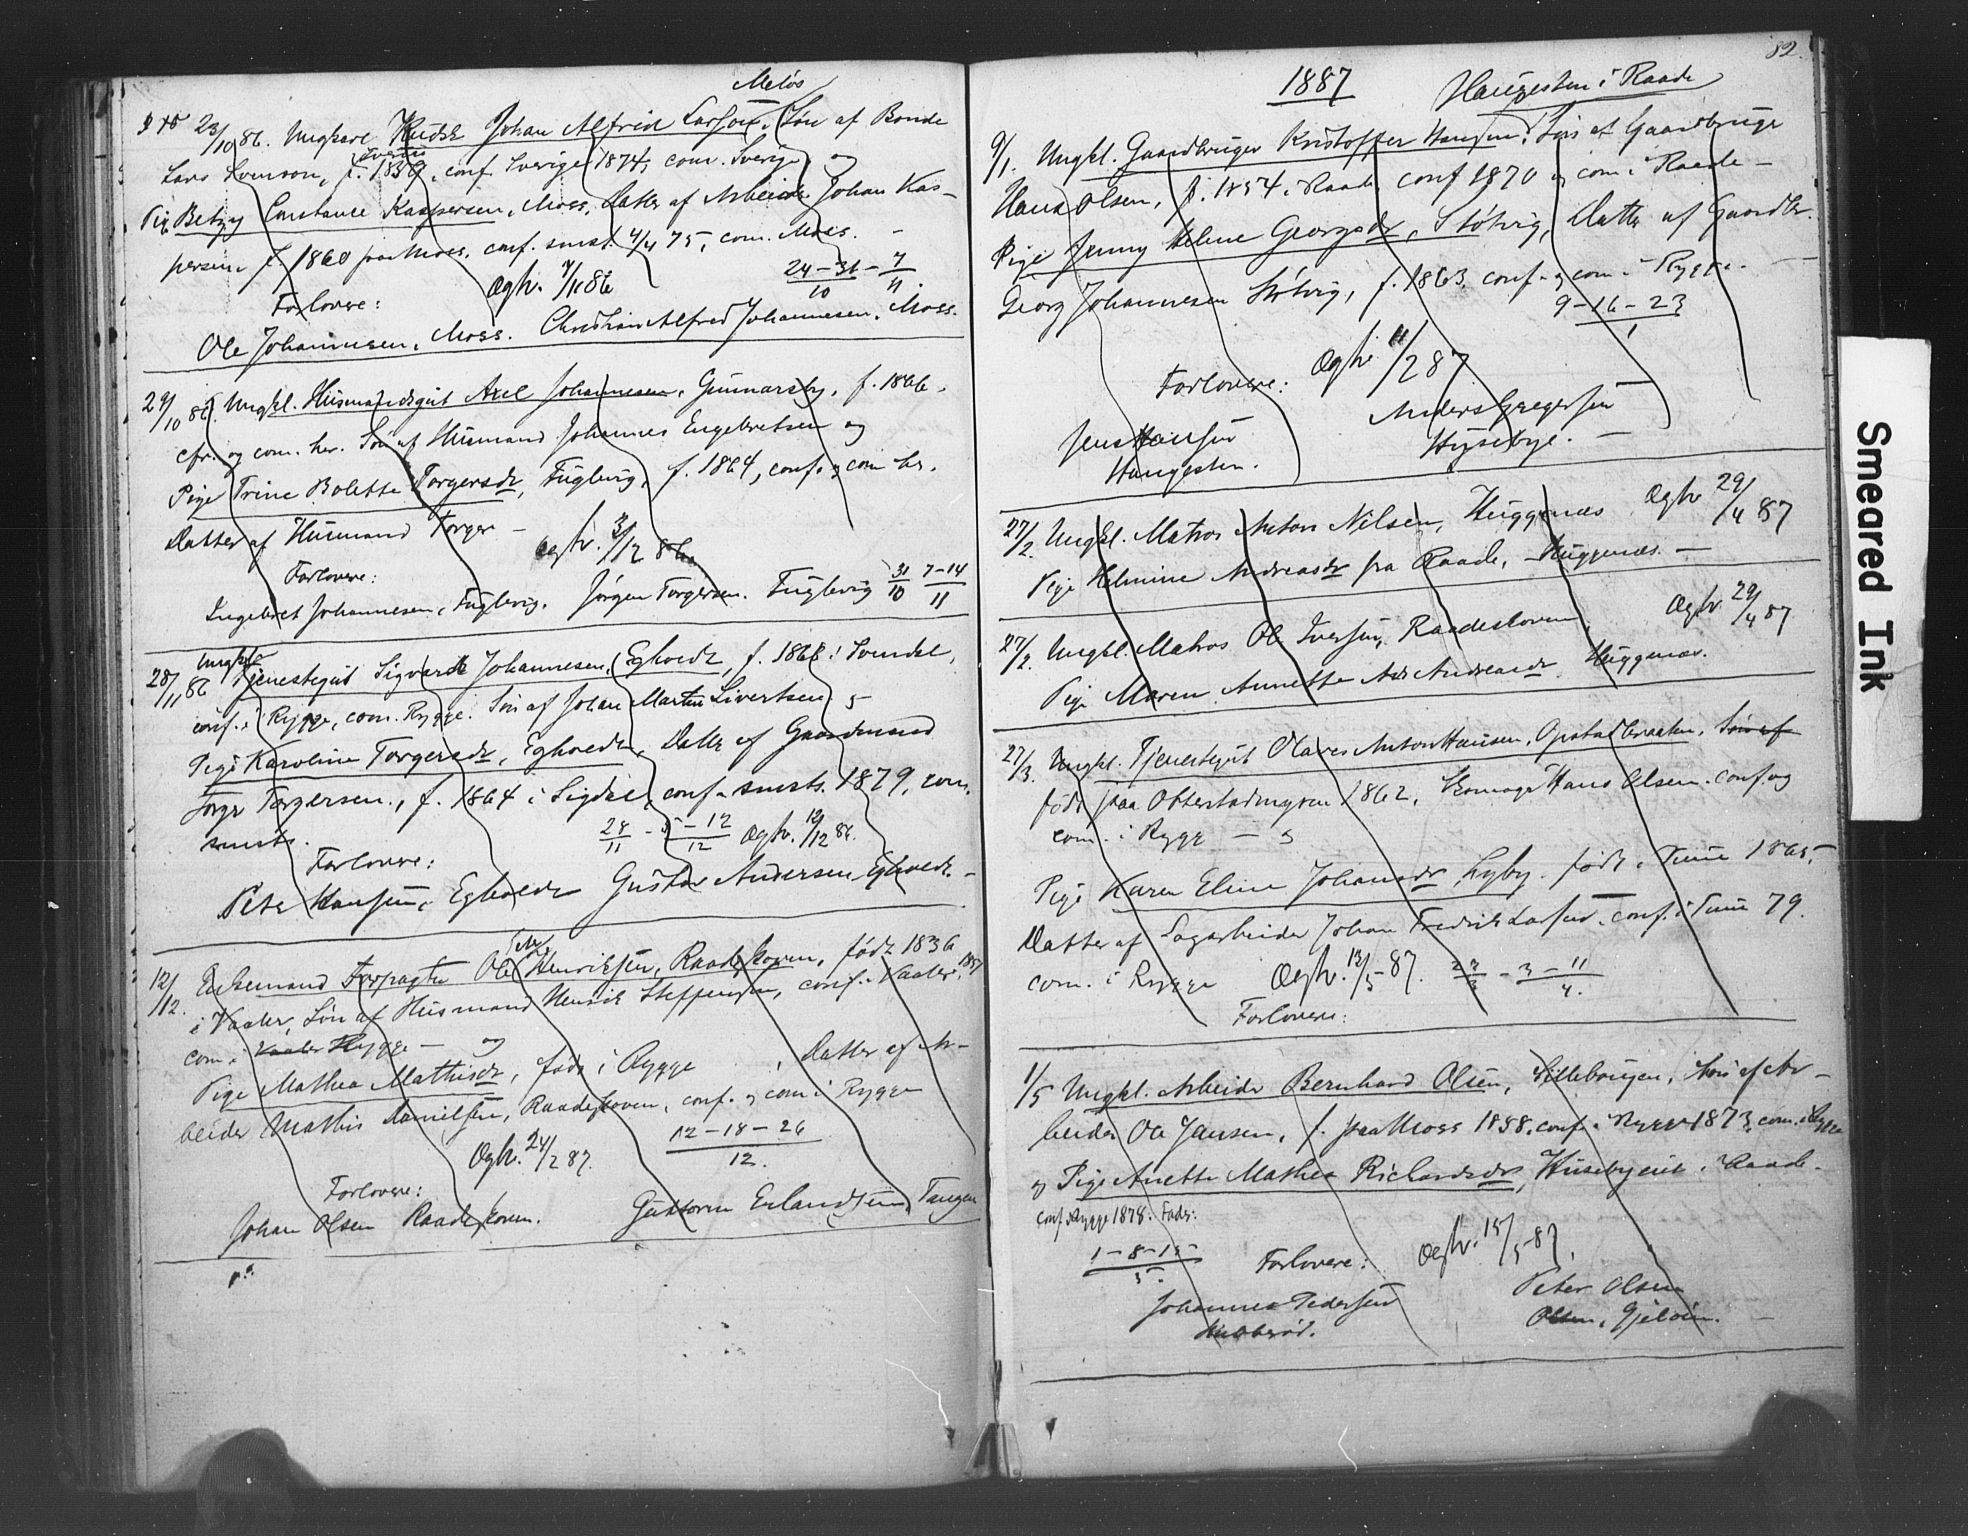 Meløs
23/10 86. Ungkarl Kudsk Johan Alfred Larson, Søn af Bonde
Lars Svenson, f. Sverige 1839, conf. Sverige 1874, com. Sverige og
Pige Betzy Constance Kaspersen, Moss, Datter af Arbeider Johan Kas-
persen f. 1860 paa Moss, conf. smst. 4/4 75, com. Moss. -
Forlovere: Ægtv. 7/11 86 24-31/10 - 7/11
Ole Johannesen, Moss. Christian Alfred Johannesen, Moss.
29/10 86. Ungkl. Husmandsgut Axel Johannesen, Gunnarsby, f. 1866,
cfr. og com. her. Søn af Husmand Johannes Engebretsen og
Pige Trine Bolette Torgersdr, Fuglevig, f. 1864, conf. og com her.
Datter af Husmand Torger -
Ægtv. 3/12 86
Forlovere:
Ingebret Johannesen, Fuglevig. Jørgen Torgersen. Fuglevig 31/10 7-14/11
28/11 86 Ungkl. Tjenestegut Sigvardt Johannesen, Egholdt, f. 1868 i Svindal,
conf. i Rygge, com. Rygge. Søn af Johan Martin Sivertsen og
Pige Karoline Torgersdr, Egholdt, Datter af Gaardmand
Torger Torgersen, f. 1864 i Sigdal, conf. smsts. 1879, com.
smsts. 28/11 - 5-12/12 Ægtv. 12/12 86.
Forlovere:
Peter Hansen, Egholdt Gustav Andersen Egholdt. -
12/12. Enkemand Forpagter Ole Henriksen, Raadeskoven, født 1836
i Vaaler, Søn af Husmand Henrik Steffensen, conf. Vaaler 1851
com. i Vaaler Rygge - og
Pige Mathea Mathisdr, født i Rygge , Datter af Ar-
beider Mathis Danielsen, Raadeskoven, conf. og com i Rygge
Ægtv. 24/2 87. 12-18-26/12.
Forlovere:
Johan Olsen Raadeskoven. Guttorm Erlandsen, Tangen
82.
1887 Haugesten i Raade
9/1. Ungkl. Gaardbruger Kristoffer Hansen, Søn af Gaardbruger
Hans Olsen, f. 1854 i Raade, conf 1870 og com. i Raade -
Pige Jenny Helene Georgsdr, Støtvig, Datter af Gaardbr.
Georg Johannesen Støtvig, f. 1863 conf. og com. i Rygge. -
9-16-23/1
Forlovere: Ægtv. 11/2 87
Jens Hansen Anders Gregersen
Haugesten. Husebye. -
27/2. Ungkl. Matros Anton Nilsen, Huggenæs Ægtv 29/4 87
Pige Helmine Andreasdr fra Raade, Huggenæs. -
27/2. Ungkl. Matros Ole Iversen, Raadeskoven, Ægtv. 29/4 87
Pige Maren Annette Andreasdr Huggenæs.
27/3. Ungkl. Tjenestegut Olaves Anton Hansen, Opstadbraaten, Søn af
født paa Otterstadmyren 1862, Skomager Hans Olsen. conf. og
com. i Rygge - og
Pige Karen Eline Johansdr, Lyby. født i Tune 1865,
Datter af Sagarbeider Johan Fredrik Larsen, conf. i Tune 79.
com. i Rygge Ægtv. 13/5 87. 27/3 - 3-11/4.
Forlovere:
1/5 Ungkl. Arbeider Bernhard Olsen, Silleborgen, Søn af Ar-
beider Ole Jansen, f. paa Moss 1858, conf. i Rygge 1873, com. i Rygge
og Pige Anette Mathea Richardsdr, Husebyeie i Raade.
conf. Rygge 1878. Fader:
1-8-15/5. Forlovere: Ægtv. 15/5 87.
Johannes Pedersen Peter Olsen
Kubberød. Olsen, Gjeløen. -
Smeared Ink